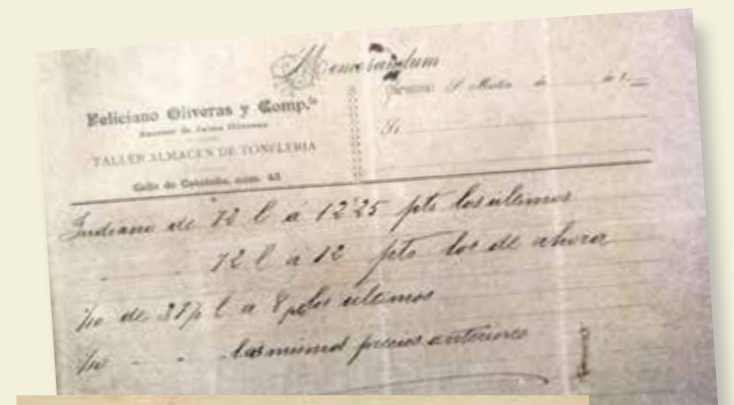 Memorandum
Feliciano Oliveras y Comp.ª
Sucesor de Jaime Oliveras
TALLER ALMACEN DE TONELERIA
Calle de Cataluña, núm. 43
S. Martín de de 1
Sr.
Indiano de 72 l a 12'25 pts los últimos
" " 72 l a 12 pts los de ahora
de l a 8 pts los últimos
" " los mismos precios anteriores